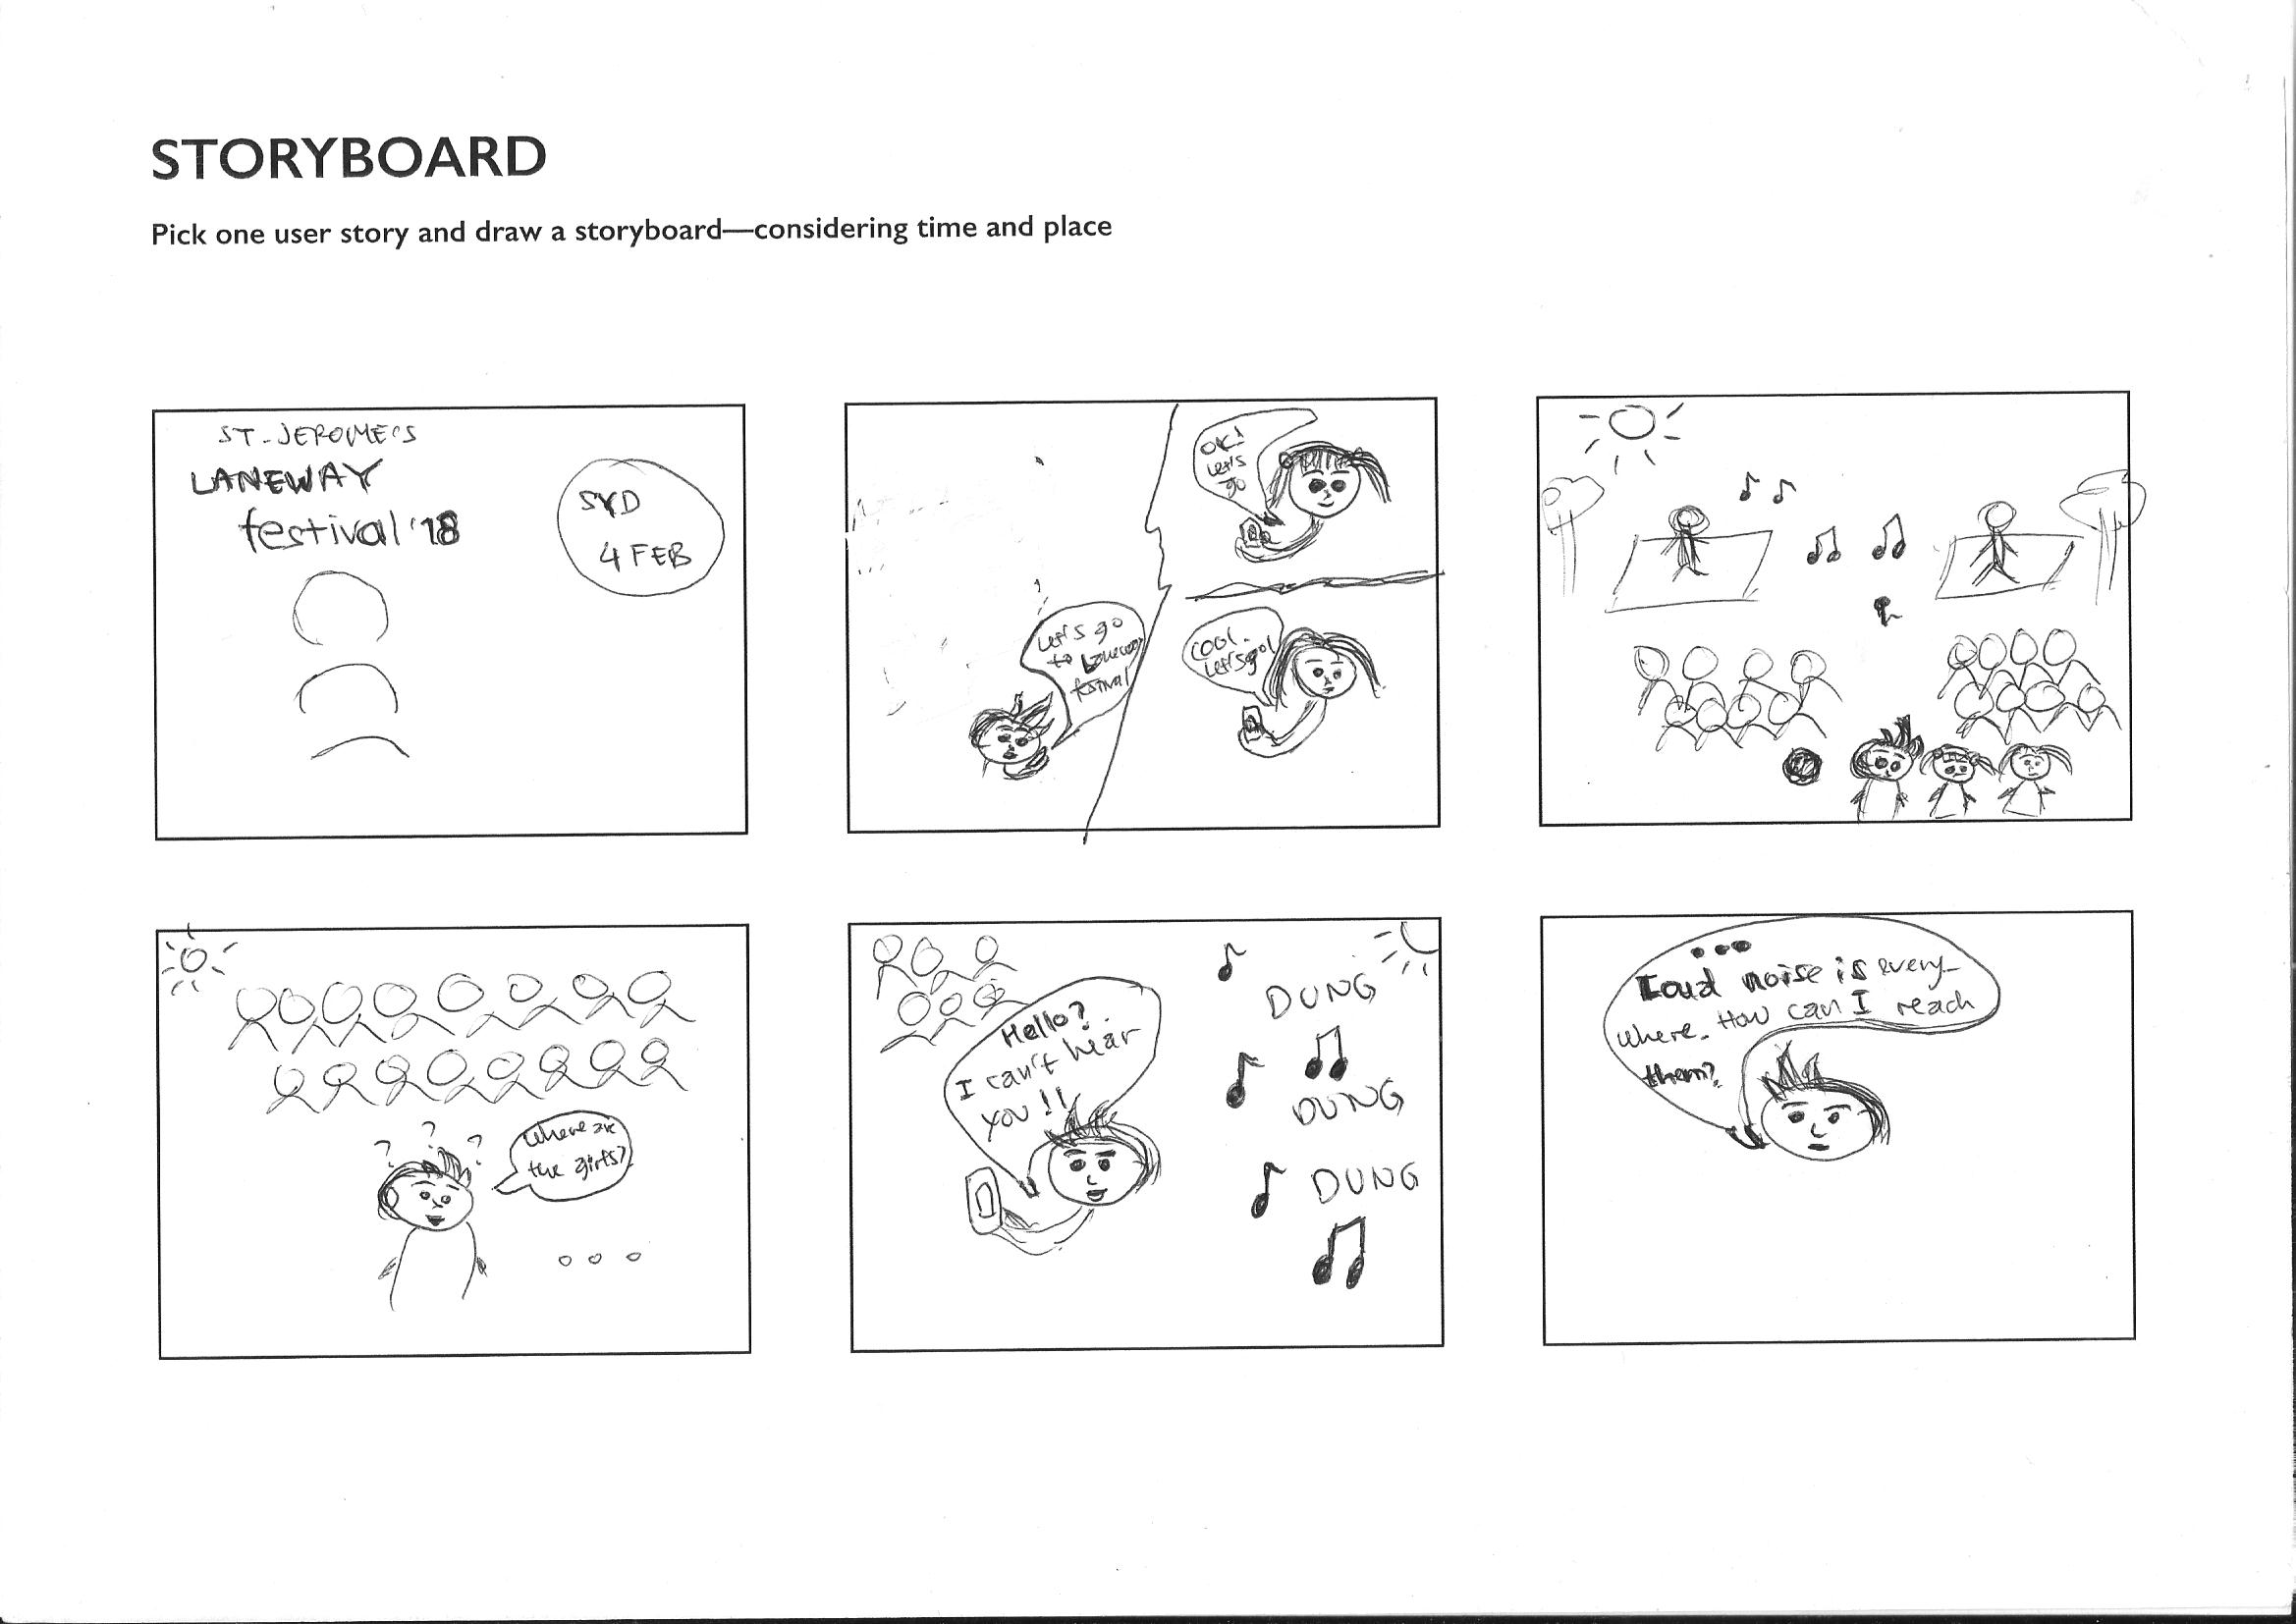 STORYBOARD
Pick one user story and draw a storyboard—considering time and place
ST. JEROME'S
LANEWAY
festival '18
SYD
4 FEB
Let's go
to Laneway
festival
OK!
Let's
go
COOL.
Let's go!
Where are
the girls?
Hello?
I can't hear
you!!
DUNG
DUNG
DUNG
...
Loud noise is every-
where. How can I reach
them?